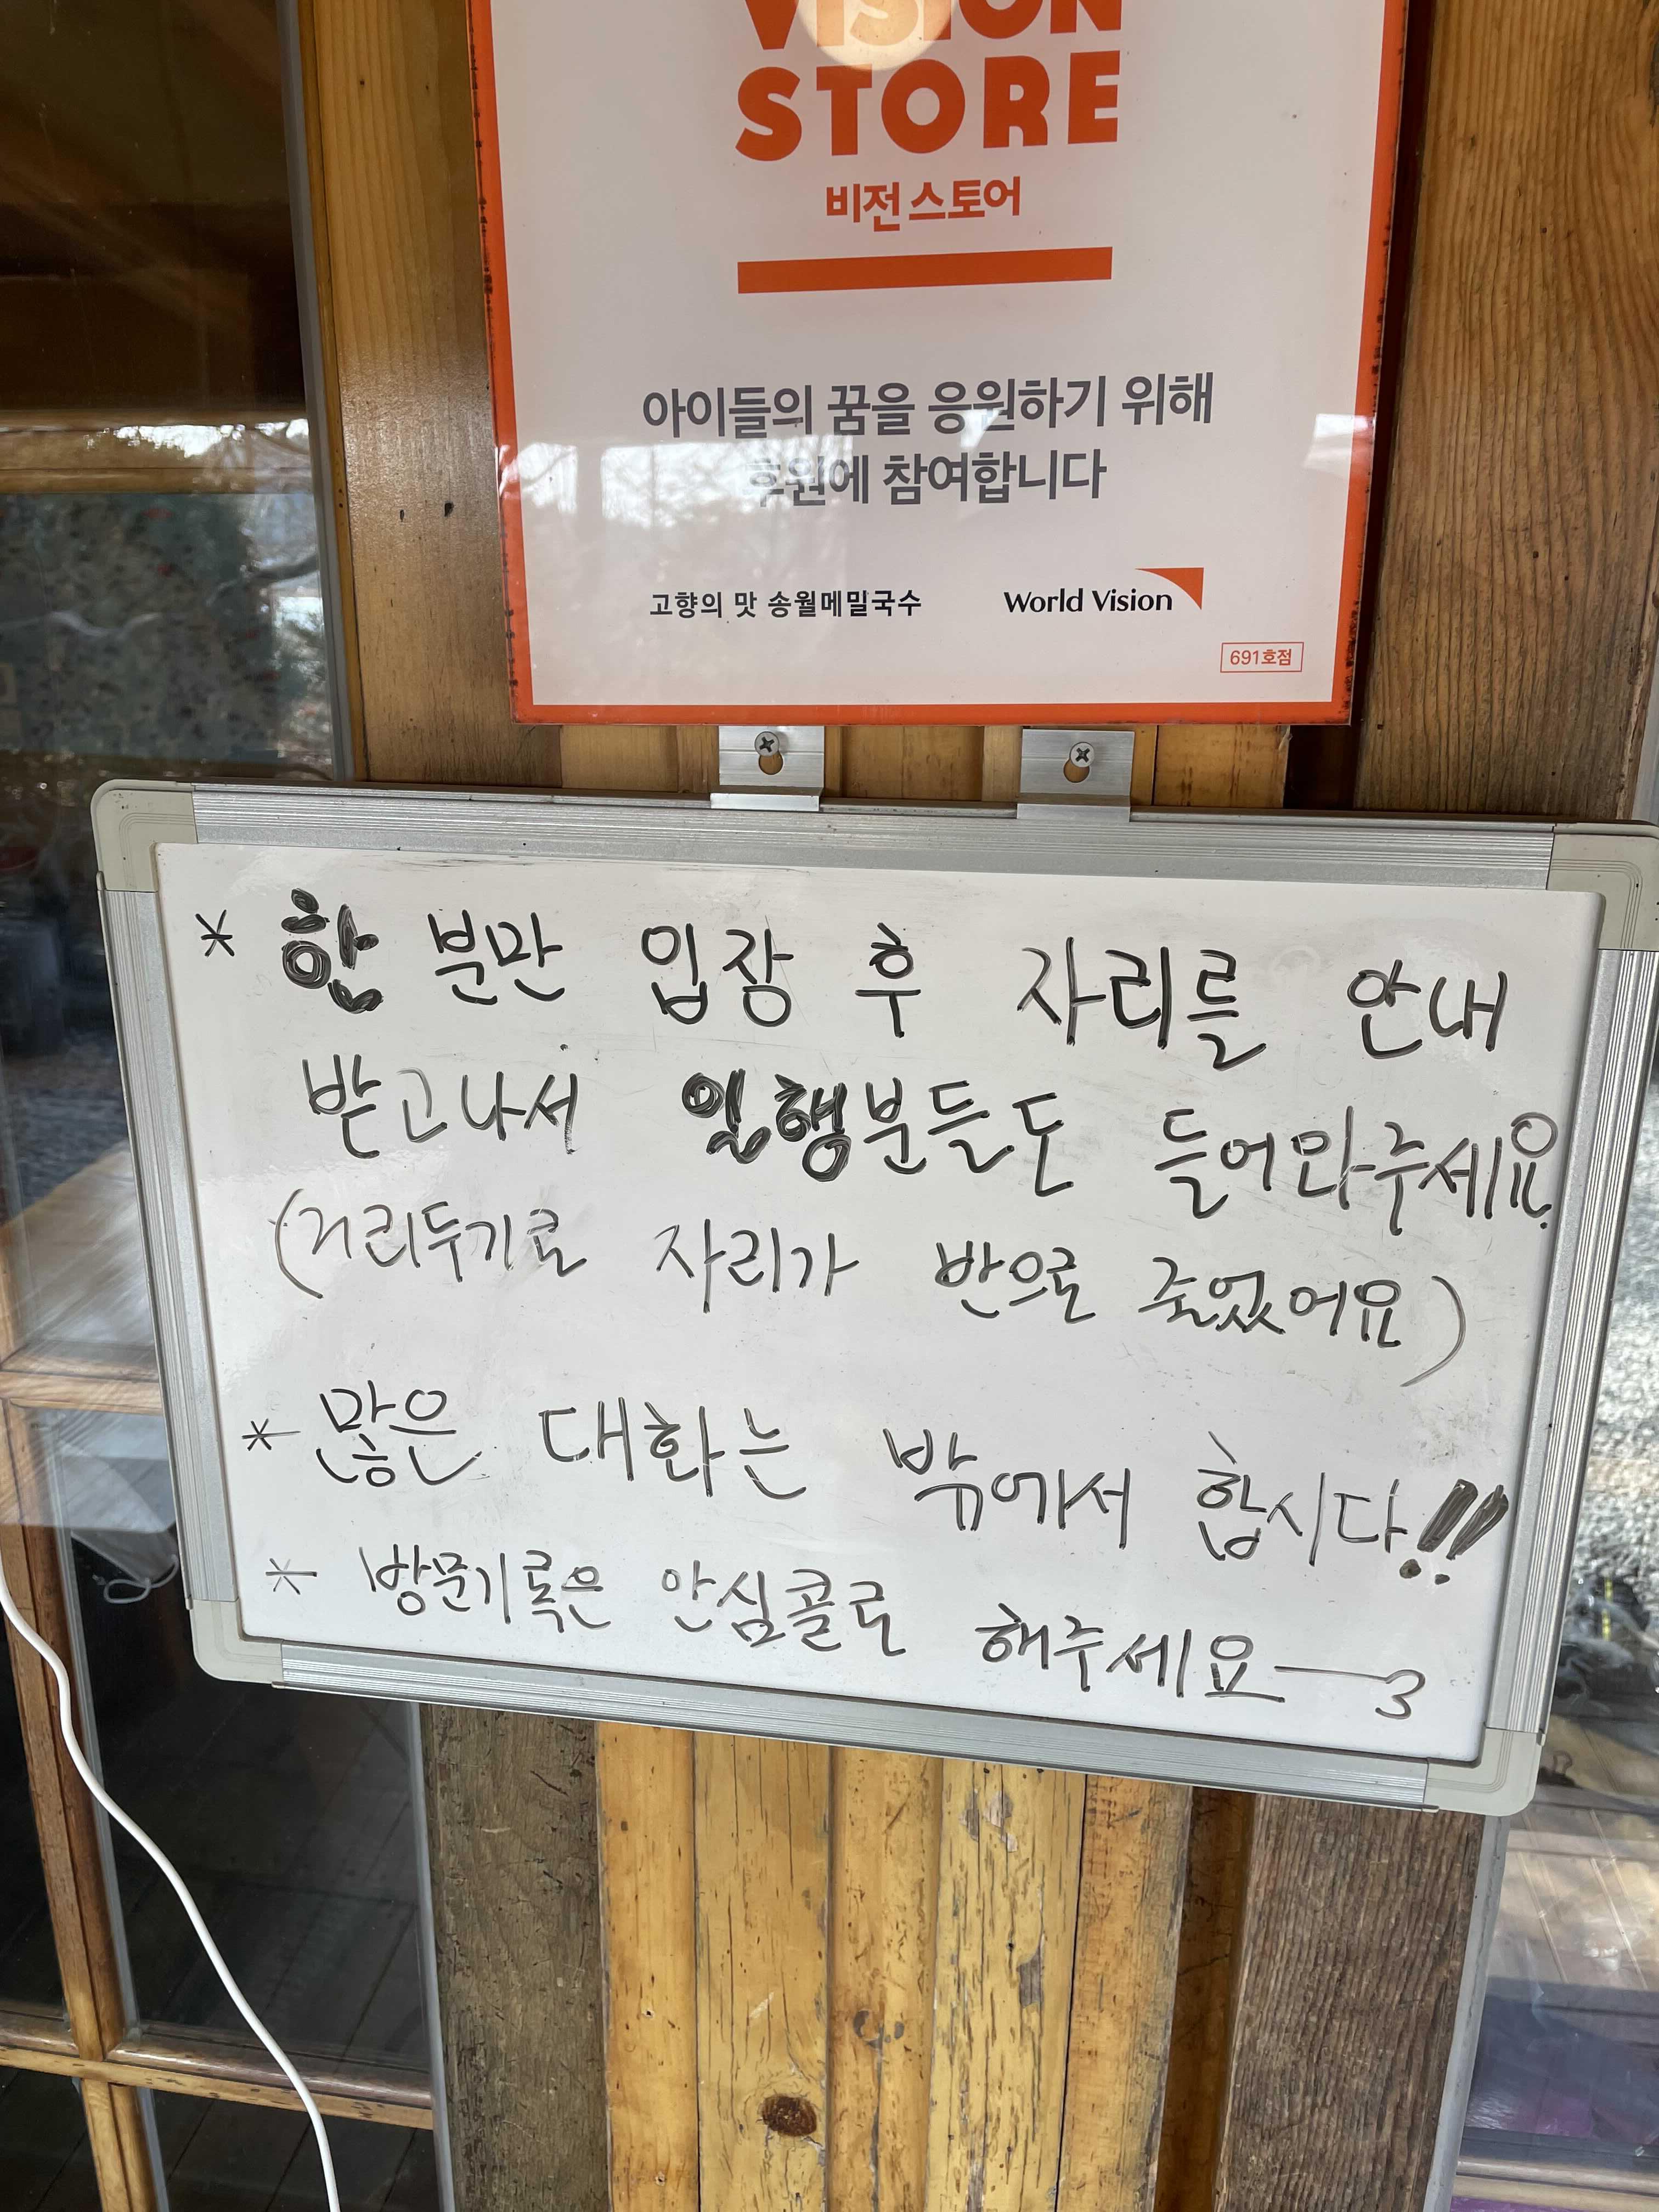 VISION
STORE
비전 스토어
아이들의 꿈을 응원하기 위해
후원에 참여합니다
고향의 맛 송월메밀국수
World Vision
691호점
* 한 분만 입장 후 자리를 안내
받고나서 일행분들도 들어와주세요.
(거리두기로 자리가 반으로 줄었어요)
* 많은 대화는 밖에서 합시다!!
* 방문기록은 안심콜로 해주세요